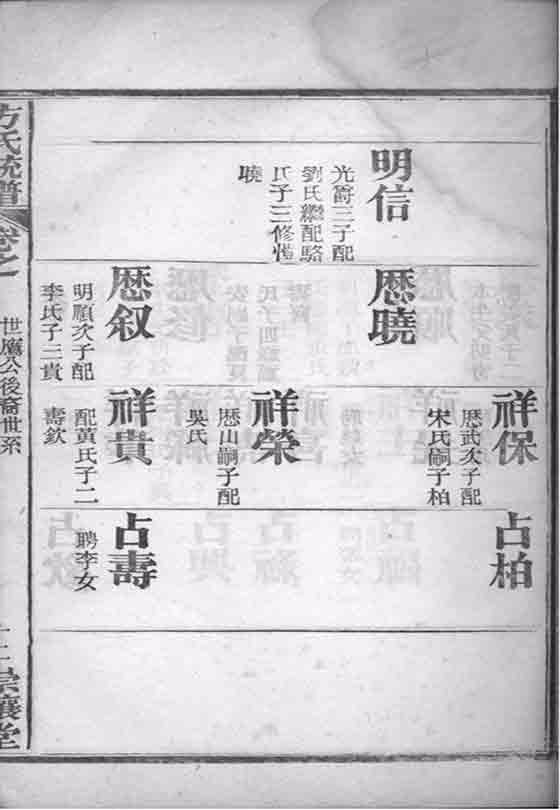 明信
光爵三子配
劉氏繼配駱
氏子三修惟
曉
歴曉
歴叙
明順次子配
李氏子三貴
祥保
歴武次子配
宋氏嗣子柏
祥榮
歴山嗣子配
吳氏
祥貴
配黃氏子二
壽欽
占柏
占壽
聘李女
方氏統譜
卷之
世鷹公後裔世系
崇讓堂